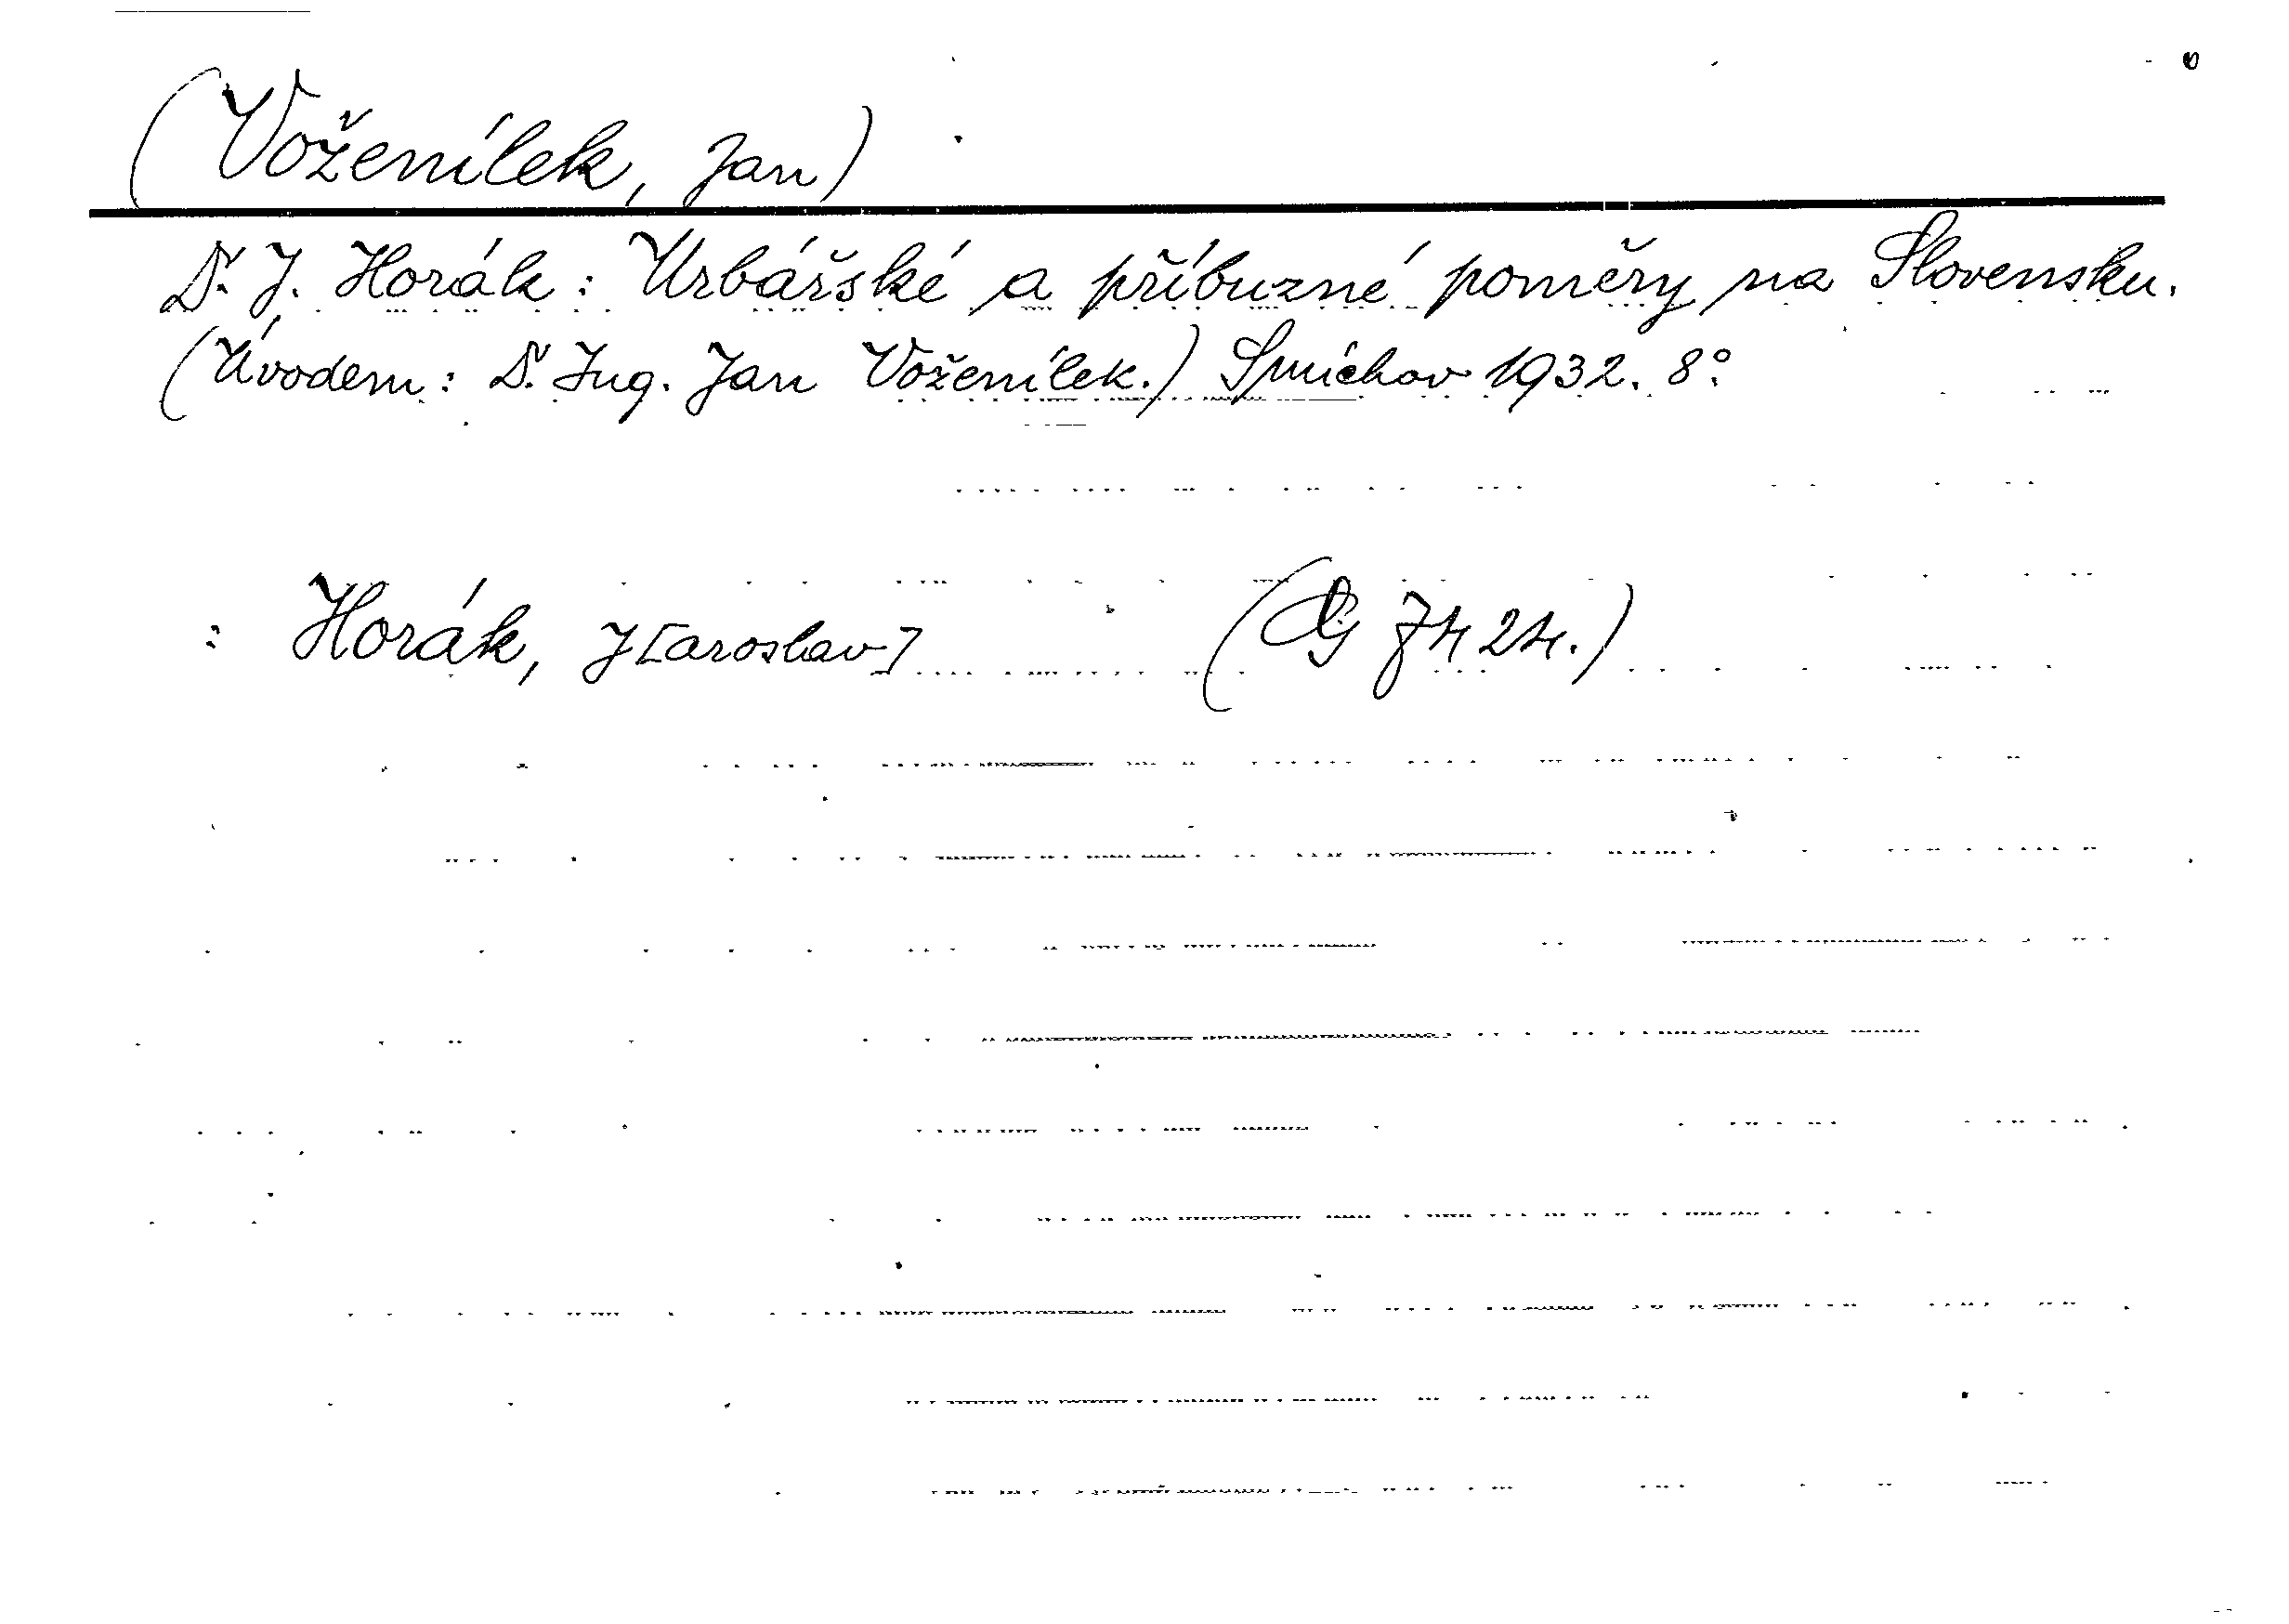 (Voženílek, Jan)
Dr. J. Horák: Urbářské a příbuzné poměry na Slovensku.
(Úvodem: Dr. Ing. Jan Voženílek.) Smíchov 1932. 8°.
: Horák, J[aroslav] (G 7424.)